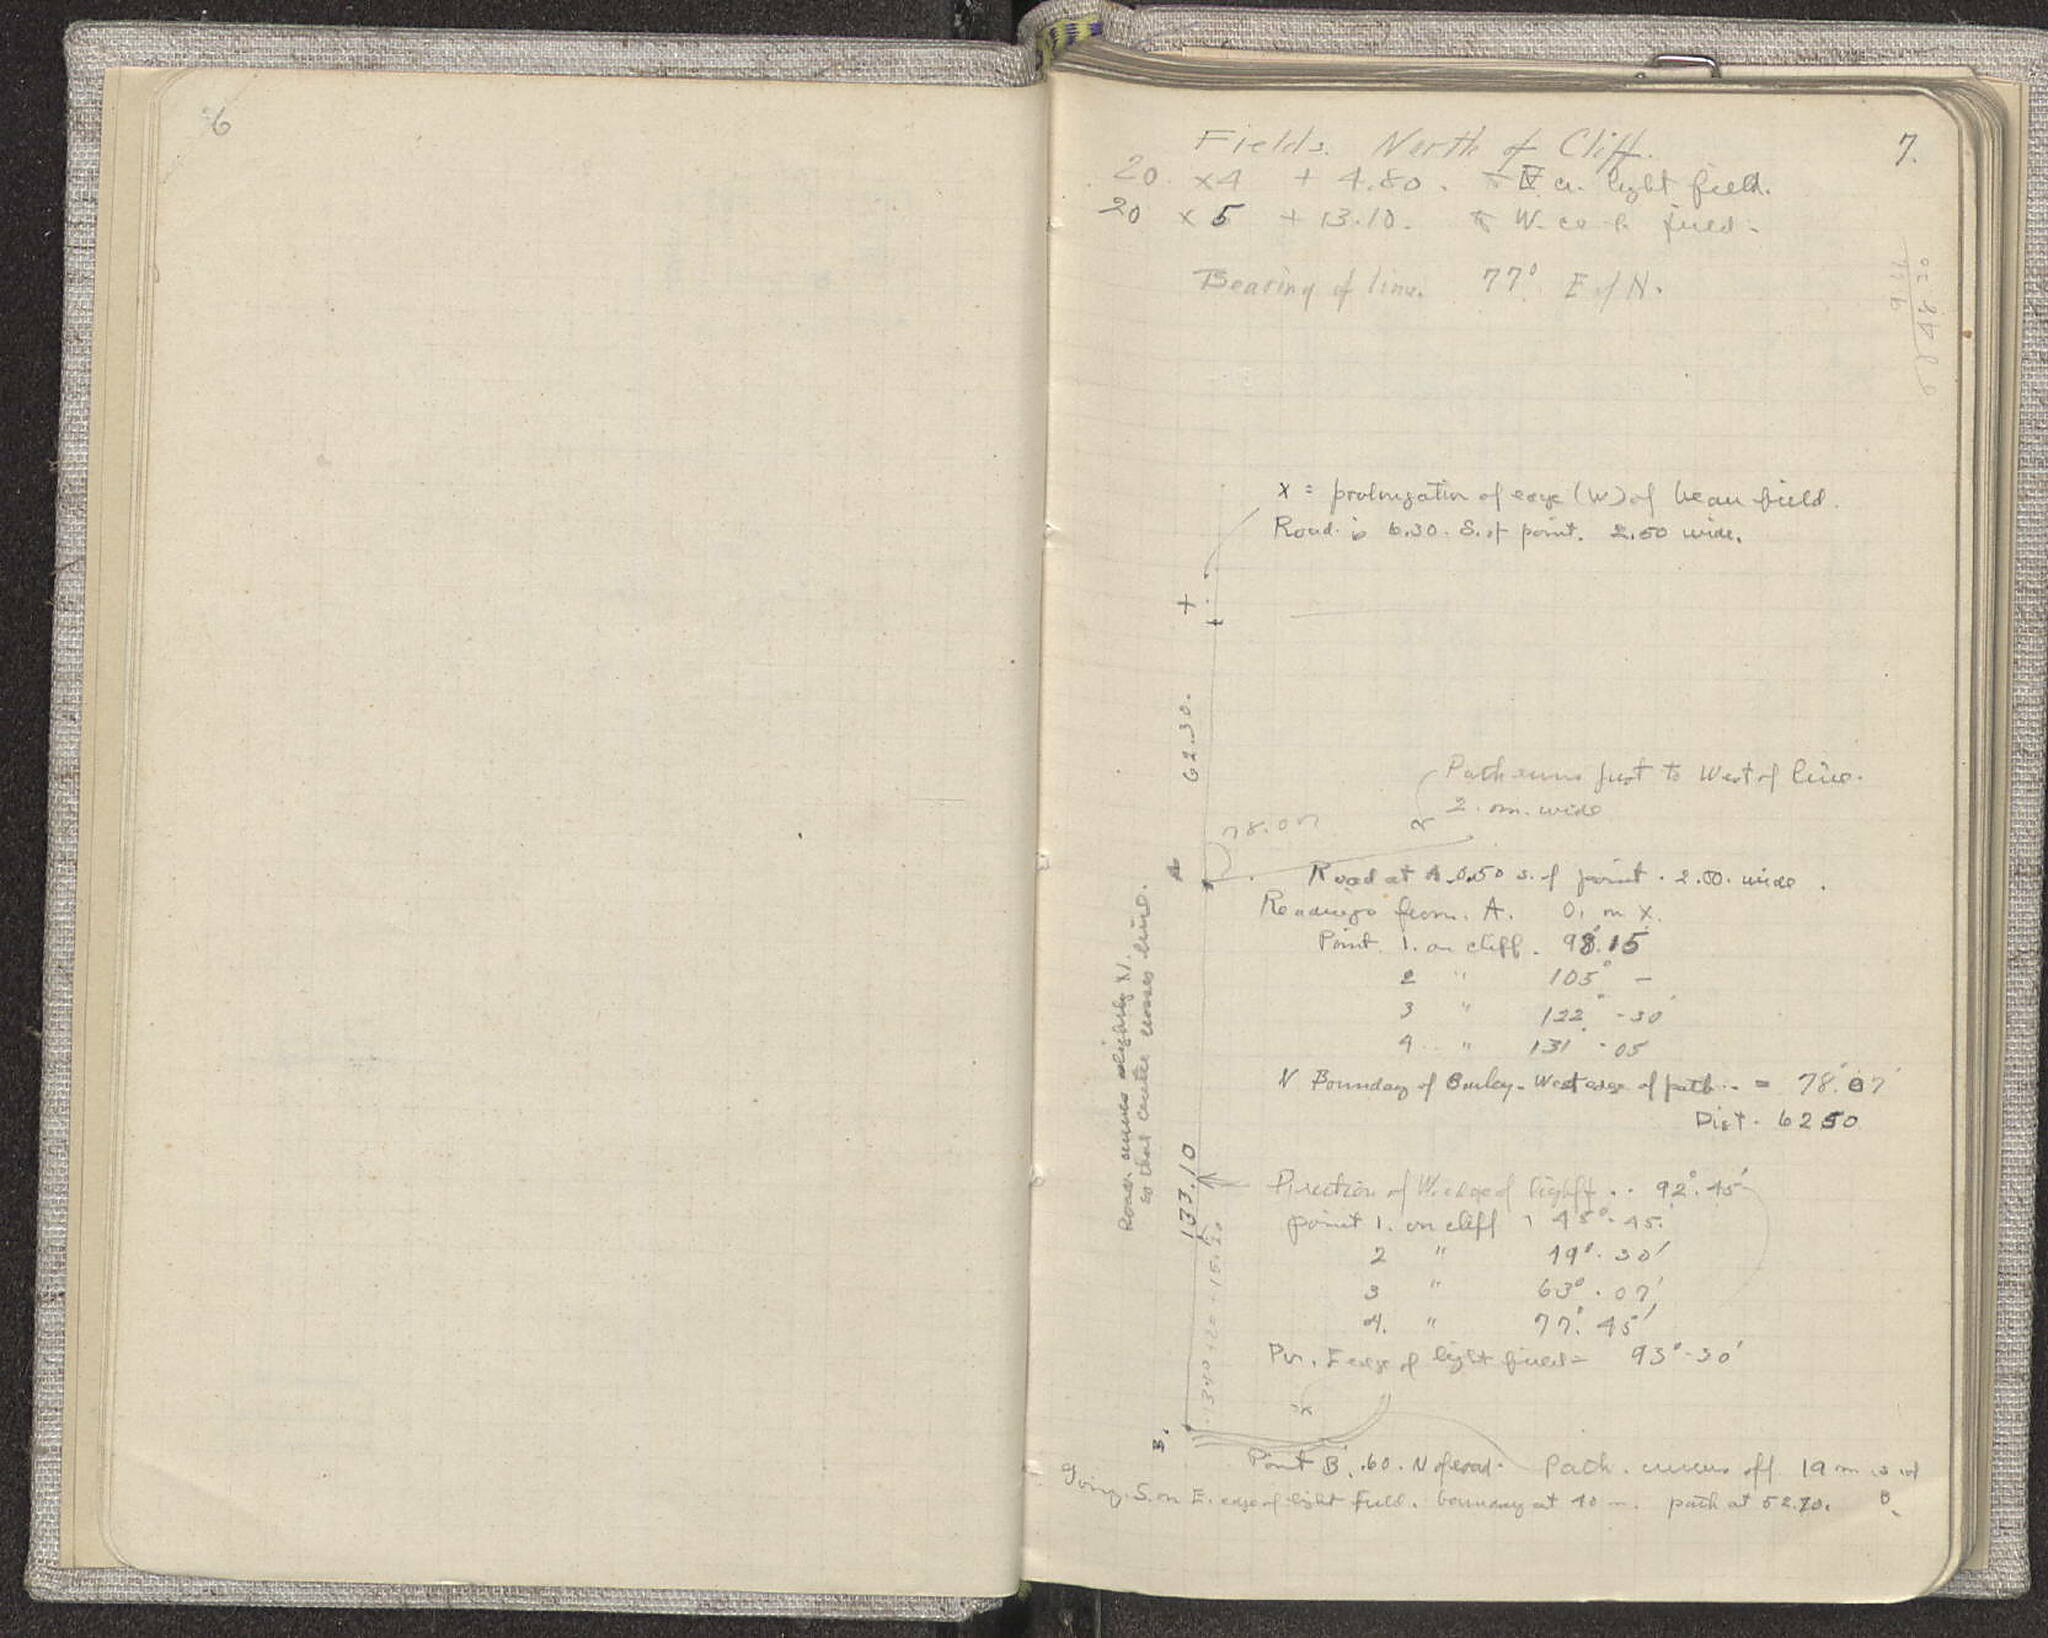 6
7.
Fields. North of Cliff.
20 x4 + 4.80. to light field.
20 x 5 + 13.10. to W. field.
Bearing of line. 77° E of N.
x = prolongation of edge (W) of bean field.
Road is 6.30. S. of point. 2.50 wide.
+
62.30.
Path runs just to West of line.
2. m. wide
78.07
A
Road at A 0.50 s. of point. 2.00. wide.
Readings from. A. 0. on X.
Point. 1. on cliff. 98.15
2 " 105° –
3 " 122° -30'
4 " 131° -05
N Boundary of Barley. West edge of path = 78° 07'
Dist. 6250
Road runs slightly N.
so that centre crosses line.
133.10
Direction of W. edge of light f. .. 92°.45'
point 1. on cliff 45°.45.
2 " 49°.30'
3 " 63°.07'
4. " 77°.45'
E edge of light field = 93°-30'
B.
Point B. .60. N of road. Path. runs off 19 m of B.
Going. S. on E. edge of light field. boundary at 40 m. path at 52.70.